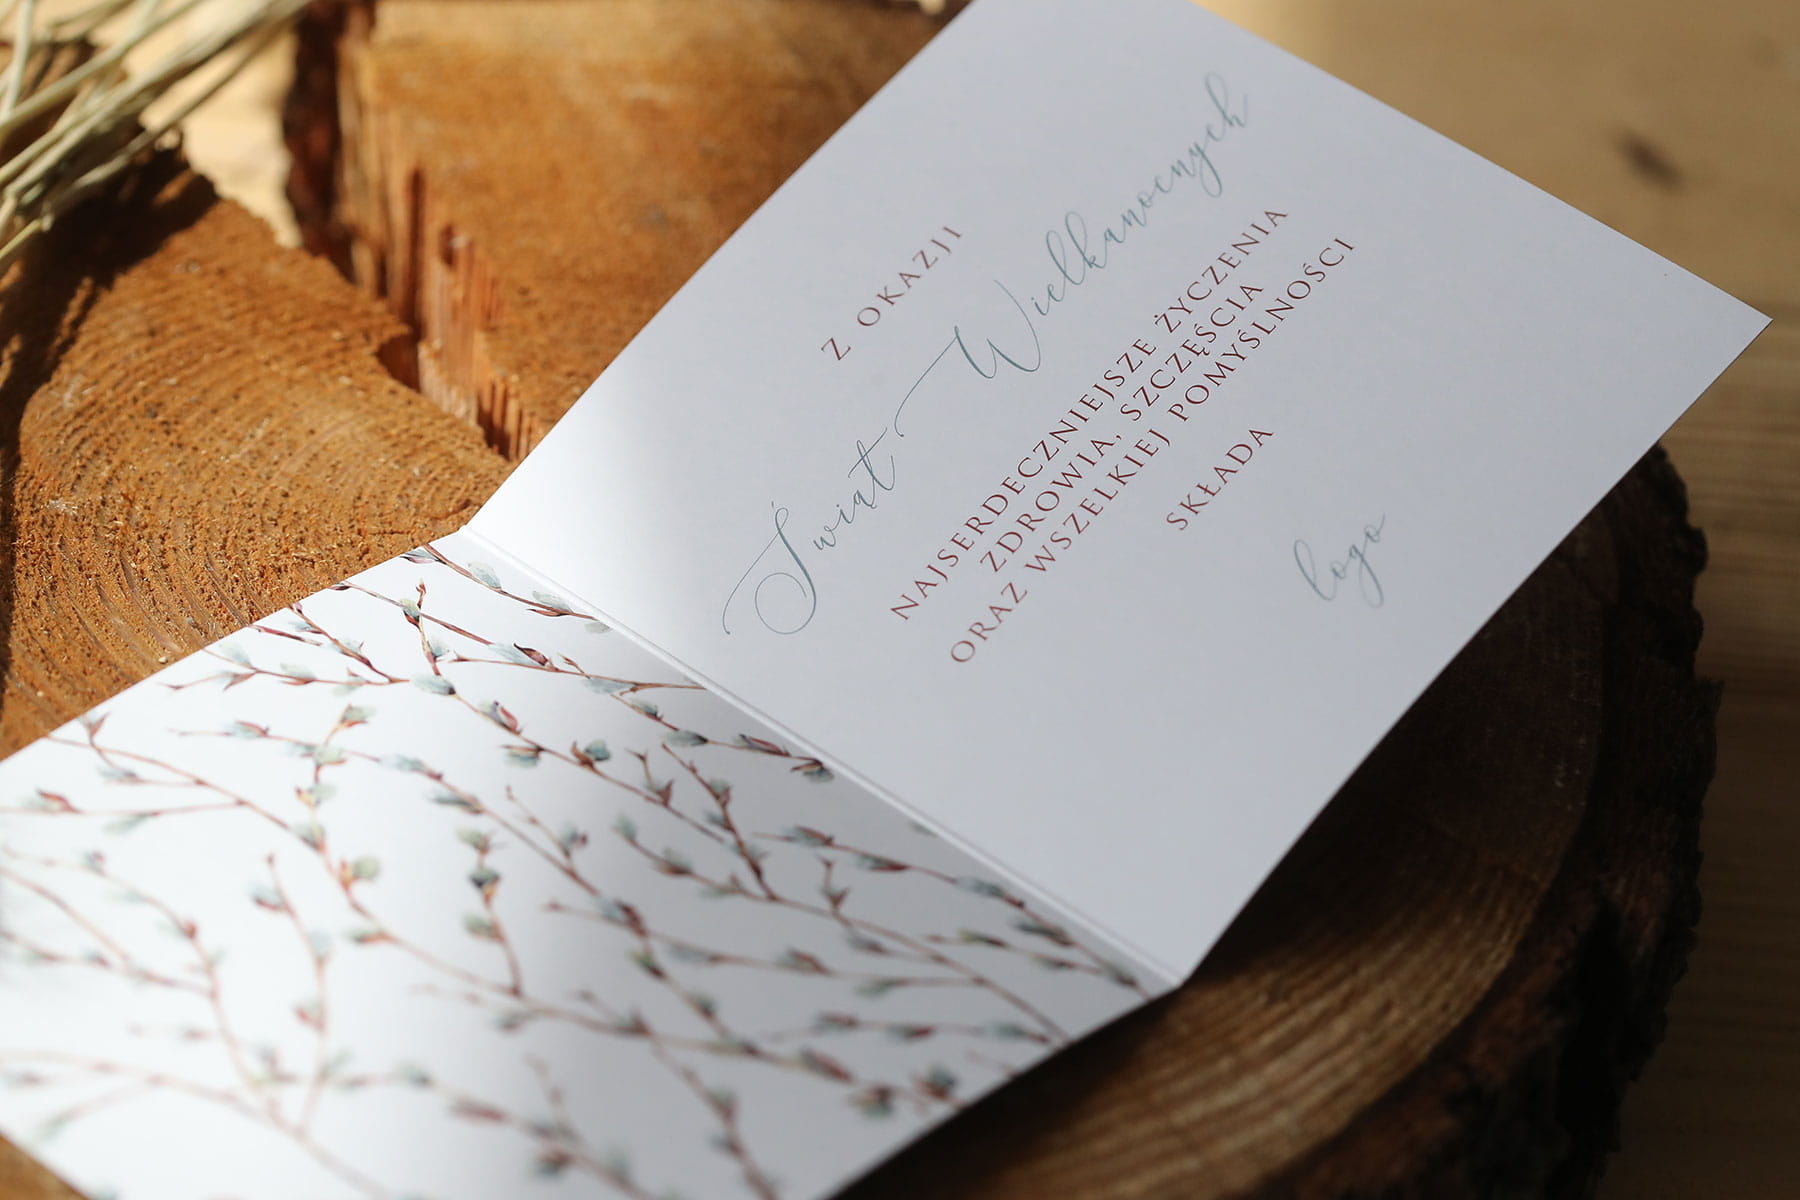 Z OKAZJI
Świąt Wielkanocnych
NAJSERDECZNIEJSZE ŻYCZENIA
ZDROWIA, SZCZĘŚCIA
ORAZ WSZELKIEJ POMYŚLNOŚCI
SKŁADA
logo